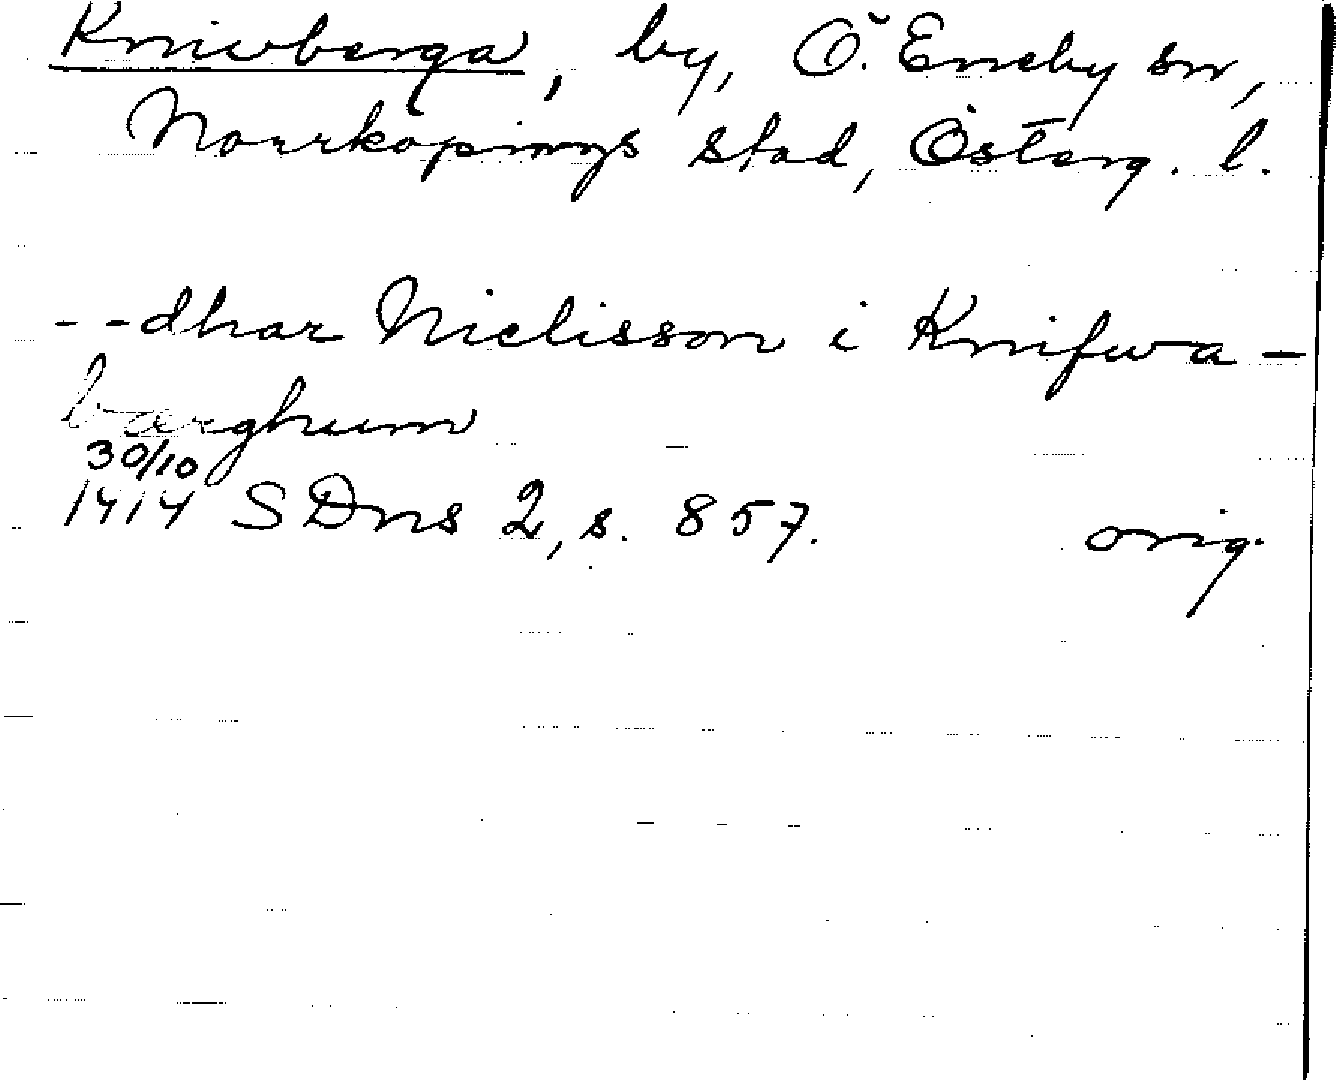 Knivberga, by, Ö. Eneby sn,
Norrköpings stad, Österg. l.
--dhar Niclisson i Knifwa-
bærghum
30/10
1414 SDns 2, s. 857. orig.